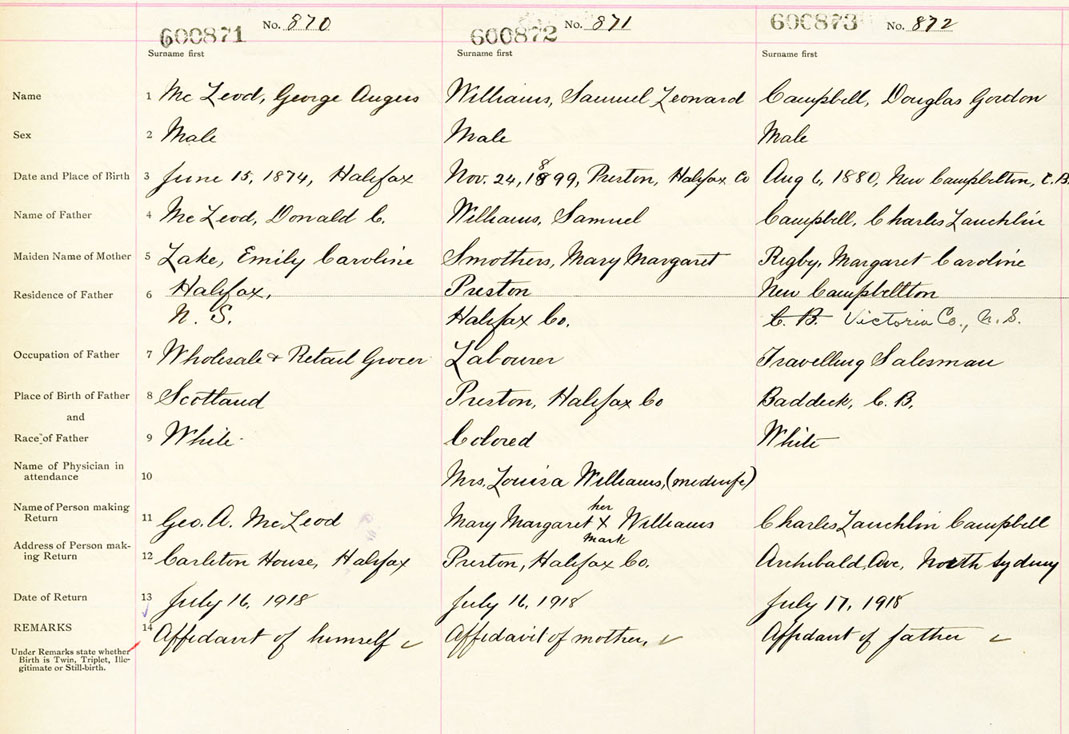 No. 870 No. 871 No. 872
600871 600872 600873
Surname first Surname first Surname first
Name 1 Mc Leod, George Angus Williams, Samuel Leonard Campbell, Douglas Gordon
Sex 2 Male Male Male
Date and Place of Birth 3 June 15, 1874, Halifax Nov. 24, 1899, Preston, Halifax Co Aug 6, 1880, New Campbellton, C.B.
8
Name of Father 4 Mc Leod, Donald C. Williams, Samuel Campbell, Charles Lauchlin
Maiden Name of Mother 5 Lake, Emily Caroline Smothers, Mary Margaret Rigby, Margaret Caroline
Residence of Father 6 Halifax, Preston New Campbellton
N. S. Halifax Co. C. B. Victoria Co., N. S.
Occupation of Father 7 Wholesale & Retail Grocer Labourer Travelling Salesman
Place of Birth of Father 8 Scotland Preston, Halifax Co Baddeck, C. B.
and
Race of Father 9 White Colored White
Name of Physician in
attendance 10 Mrs. Louisa Williams, (midwife)
Name of Person making
her
Return 11 Geo. A. McLeod Mary Margaret X Williams Charles Lauchlin Campbell
mark
Address of Person mak-
ing Return 12 Carleton House, Halifax Preston, Halifax Co. Archibald Ave, North Sydney
Date of Return 13 July 16, 1918 July 16, 1918 July 17, 1918
REMARKS 14 Affidavit of himself Affidavit of mother, Affidavit of father
Under Remarks state whether
Birth is Twin, Triplet, Ille-
gitimate or Still-birth.